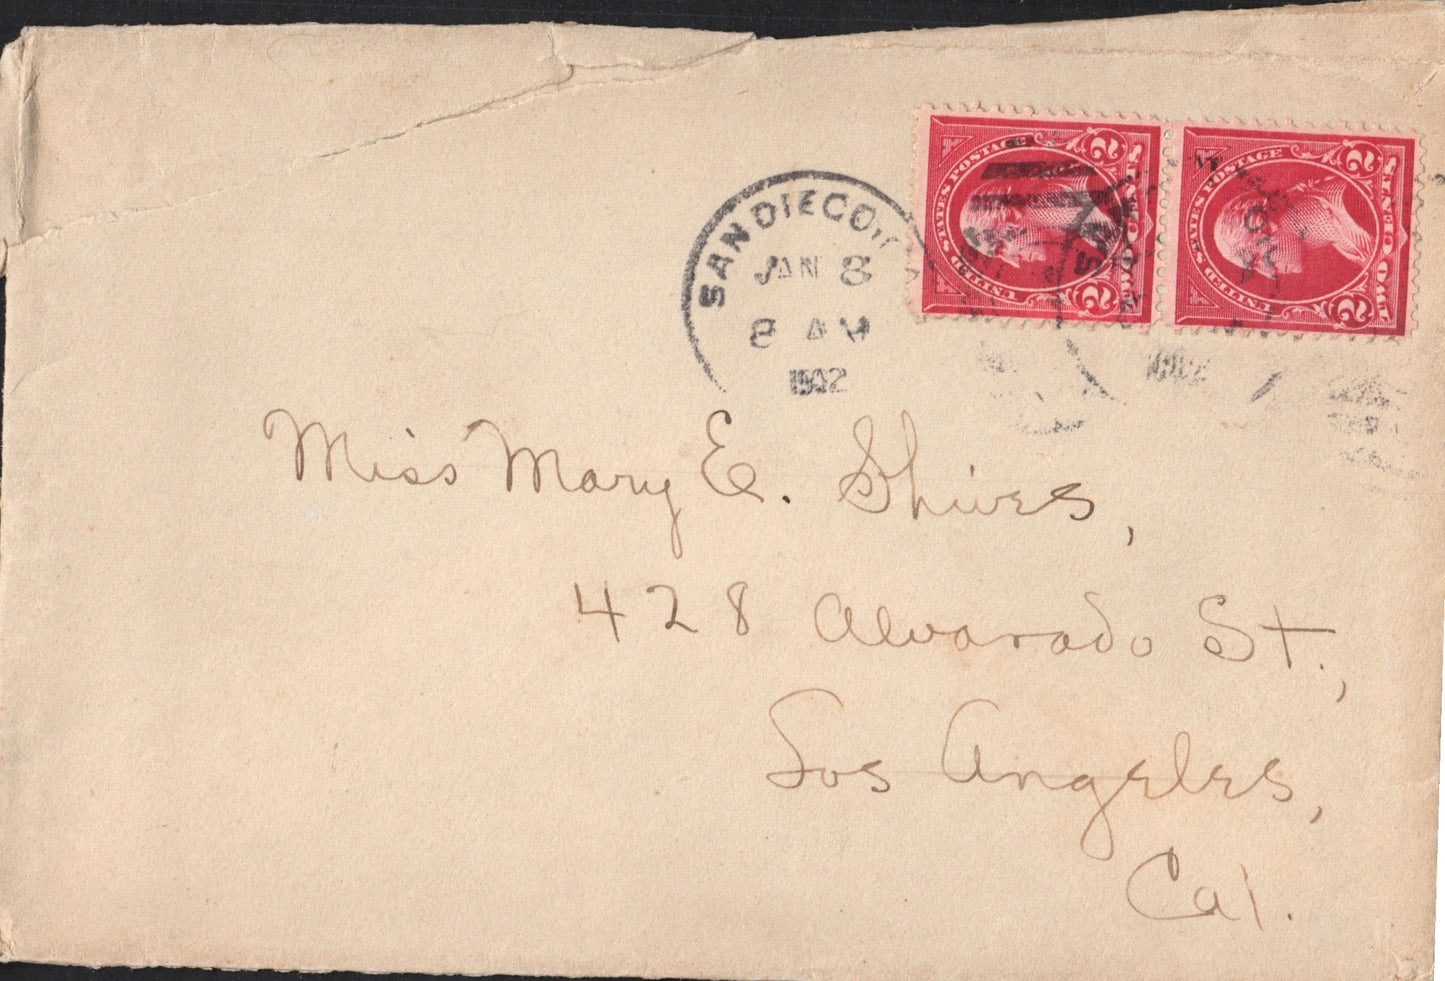 SAN DIEGO
JAN 8
8 AM
1902
UNITED STATES POSTAGE
2 2
TWO CENTS
UNITED STATES POSTAGE
2 2
TWO CENTS
Miss Mary E. Shives,
428 Alvarado St.,
Los Angeles,
Cal.